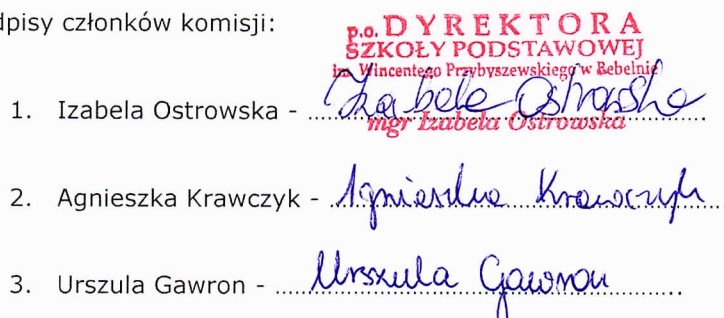 dpisy członków komisji:
p.o. DYREKTORA
SZKOŁY PODSTAWOWEJ
im. Wincentego Przybyszewskiego w Rębelnie
1. Izabela Ostrowska - Izabela Ostrowska
mgr Izabela Ostrowska
2. Agnieszka Krawczyk - Agnieszka Krawczyk
3. Urszula Gawron - Urszula Gawron